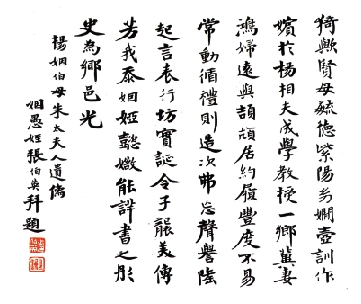 猗歟賢母毓德紫陽夙嫻壼訓作
嬪於楊相夫成學教授一鄉冀妻
鴻婦遠與頡頏居約履豐度不易
常動循禮則造次弗忘聲譽隆
起言表行坊實誕令子美傳
芳我忝姻婭懿媺能詳書之彤
史為鄉邑光
楊姻伯母朱太夫人遺像
姻愚姪張伯英拜題